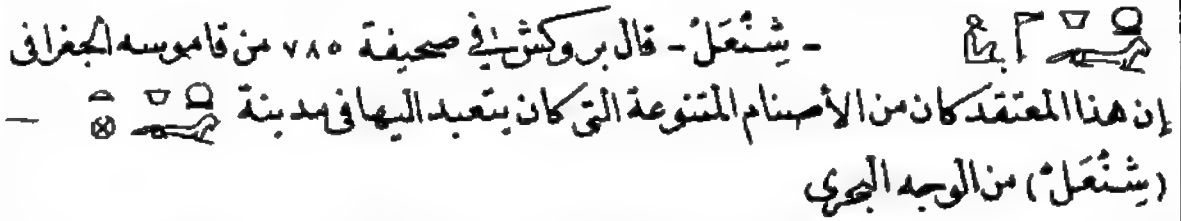 - شِنْعَلُ - قال بروكش فى صحيفة ٧٨٥ من قاموسه الجغرافى
إن هذا المعتقد كان من الأصنام المتنوعة التى كان يتعبد اليها فى مدينة —
(شِنْعَلُ) من الوجه البحرى